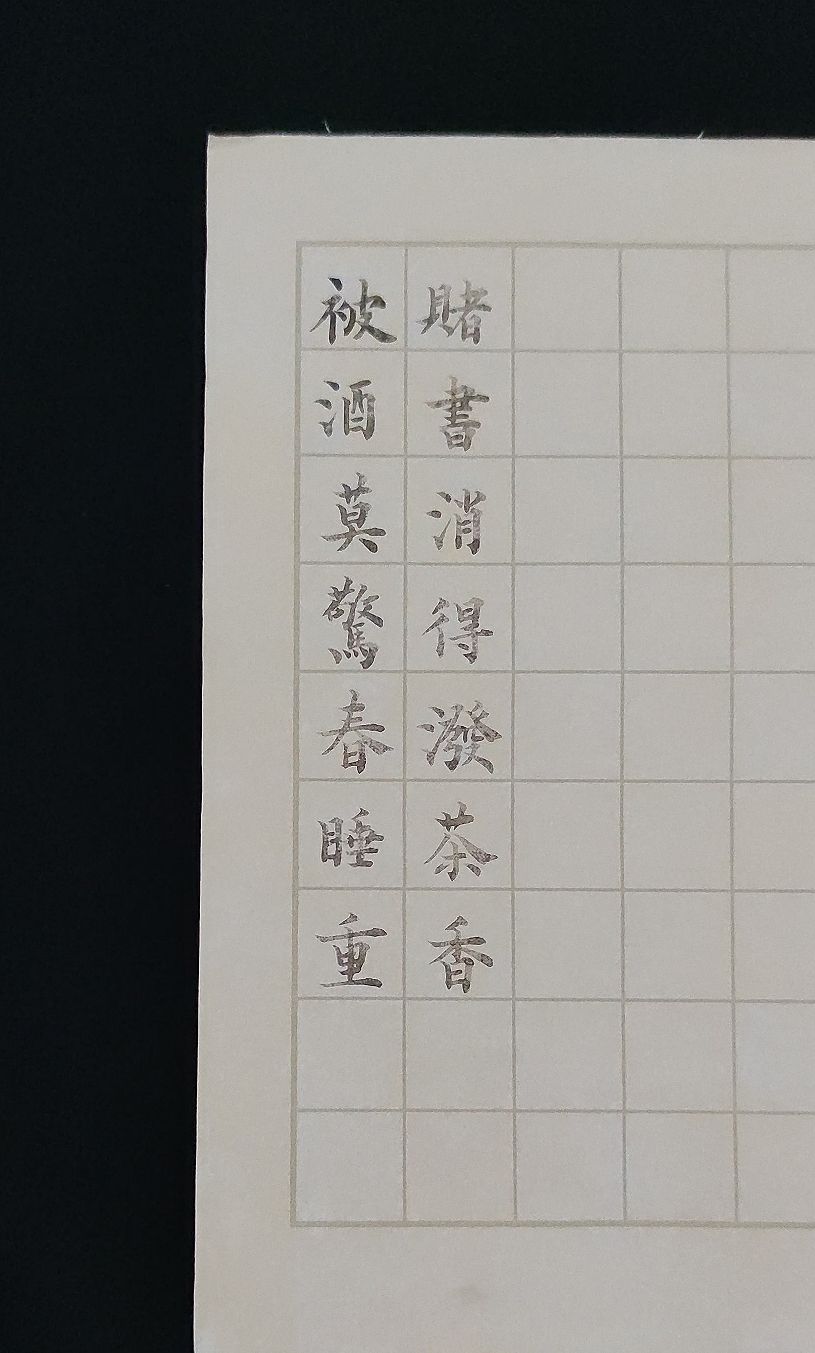 被酒莫驚春睡重
賭書消得潑茶香